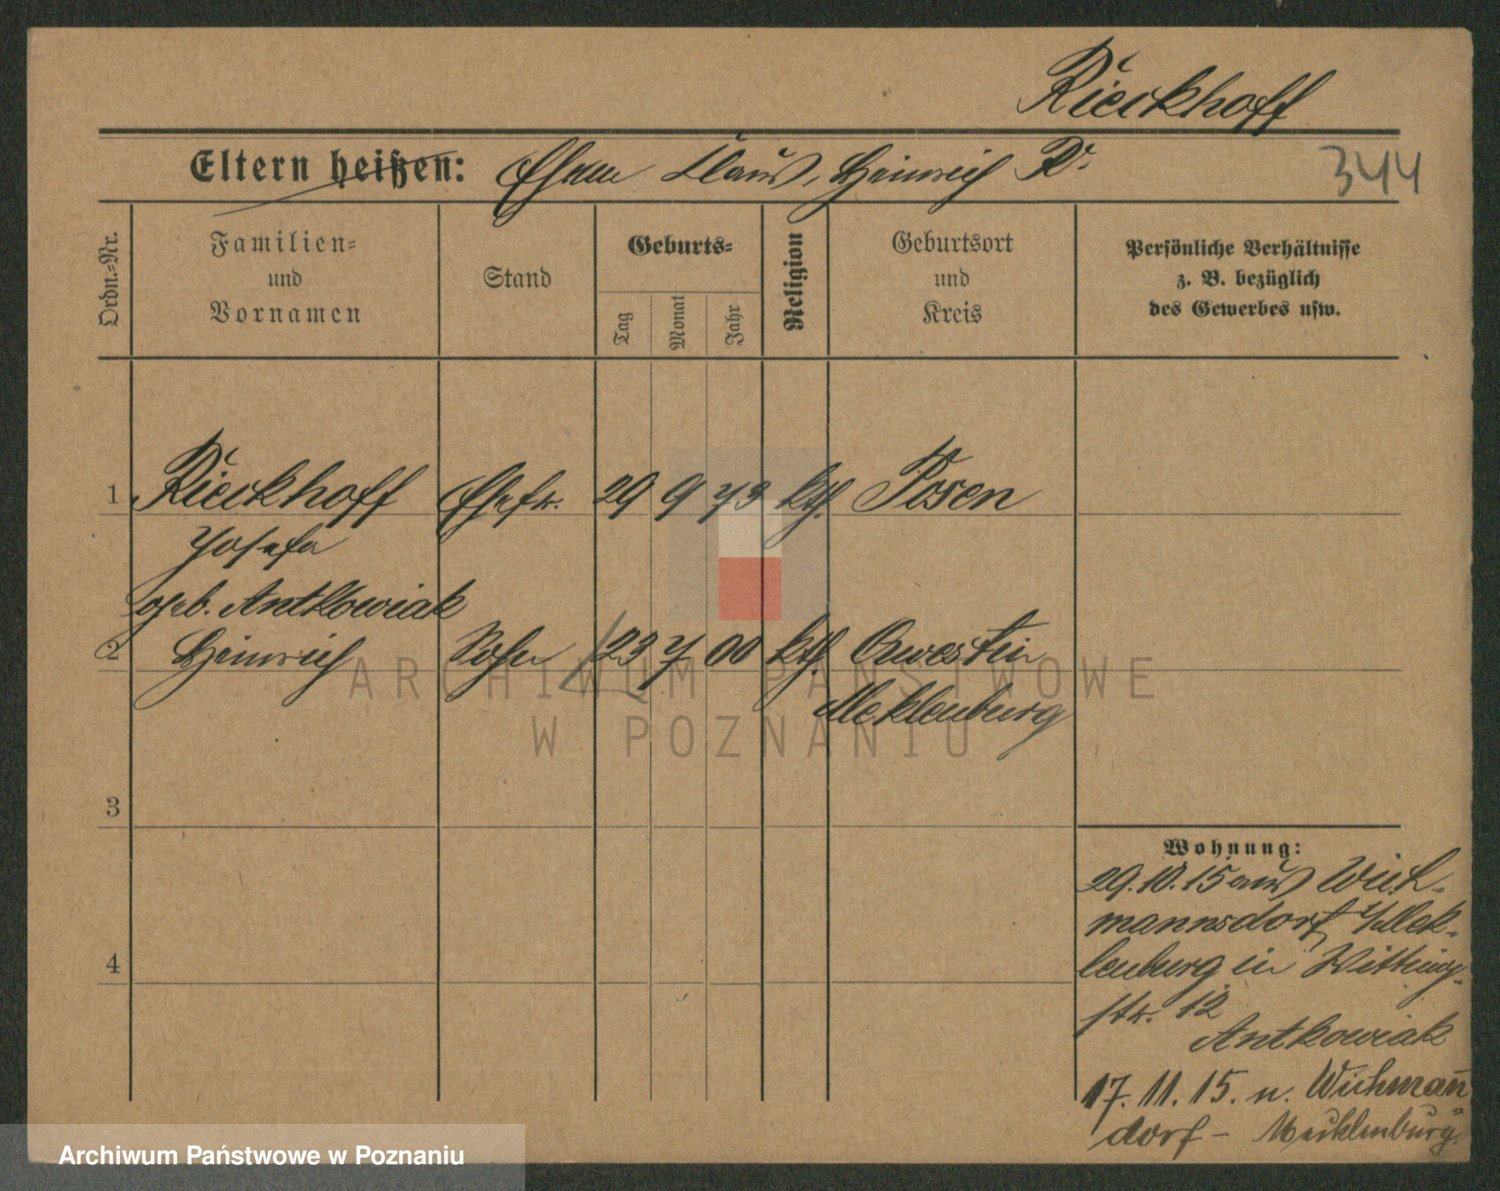 Rieckhoff
Eltern heißen: Ehem Claus, Heinrich R.
344
Ordn.-Nr.
Familien-
und
Vornamen
Stand
Geburts-
Tag
Monat
Jahr
Religion
Geburtsort
und
Kreis
Persönliche Verhältnisse
z. B. bezüglich
des Gewerbes usw.
1 Rieckhoff Ehefr. 29 9 73 kth. Posen
Josefa
geb. Antkowiak
2 Heinrich Sohn 23 7 00 kth.
Meklenburg
3
4
Wohnung:
29.10.15 aus Wich-
mannsdorf Mek-
lenburg in
str. 12
Antkowiak
17. 11. 15. n. Wichmann
dorf - Mecklenburg.
ARCHIWUM PAŃSTWOWE
W POZNANIU
Archiwum Państwowe w Poznaniu